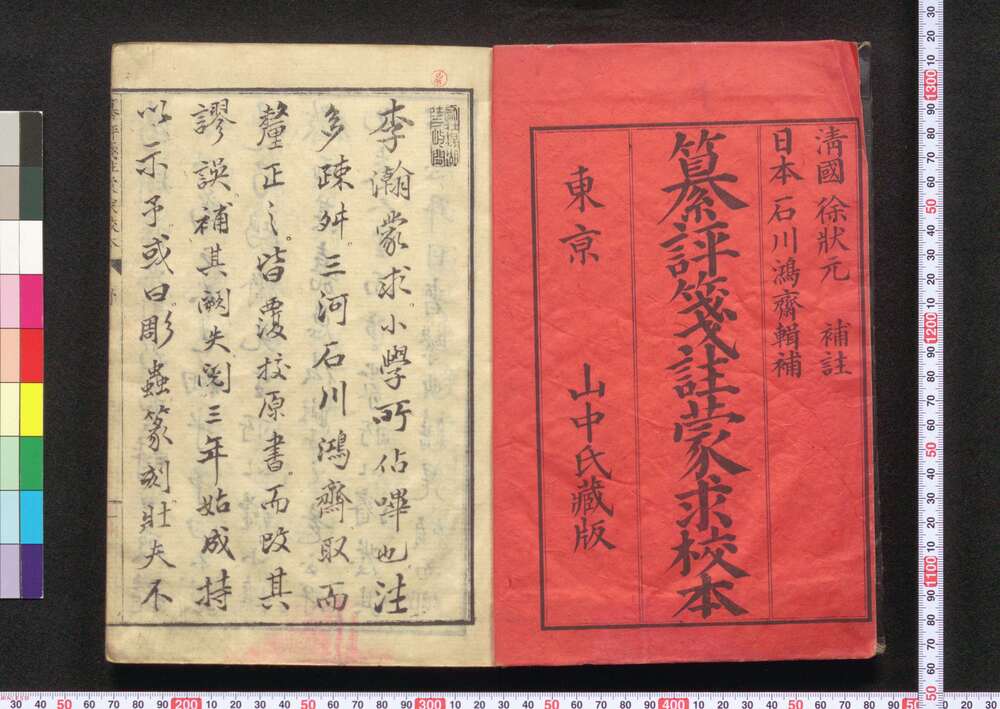 清國 徐狀元 補註
日本 石川鴻齋輯補
纂評箋註蒙求校本
東京 山中氏藏版
李瀚蒙求。小學所佔嗶也注
多疎舛。三河石川鴻齋取而
釐正之。皆覆校原書。而改其
謬誤補其闕失閱三年始成持
以示予。或曰彫蟲篆刻。壯夫不